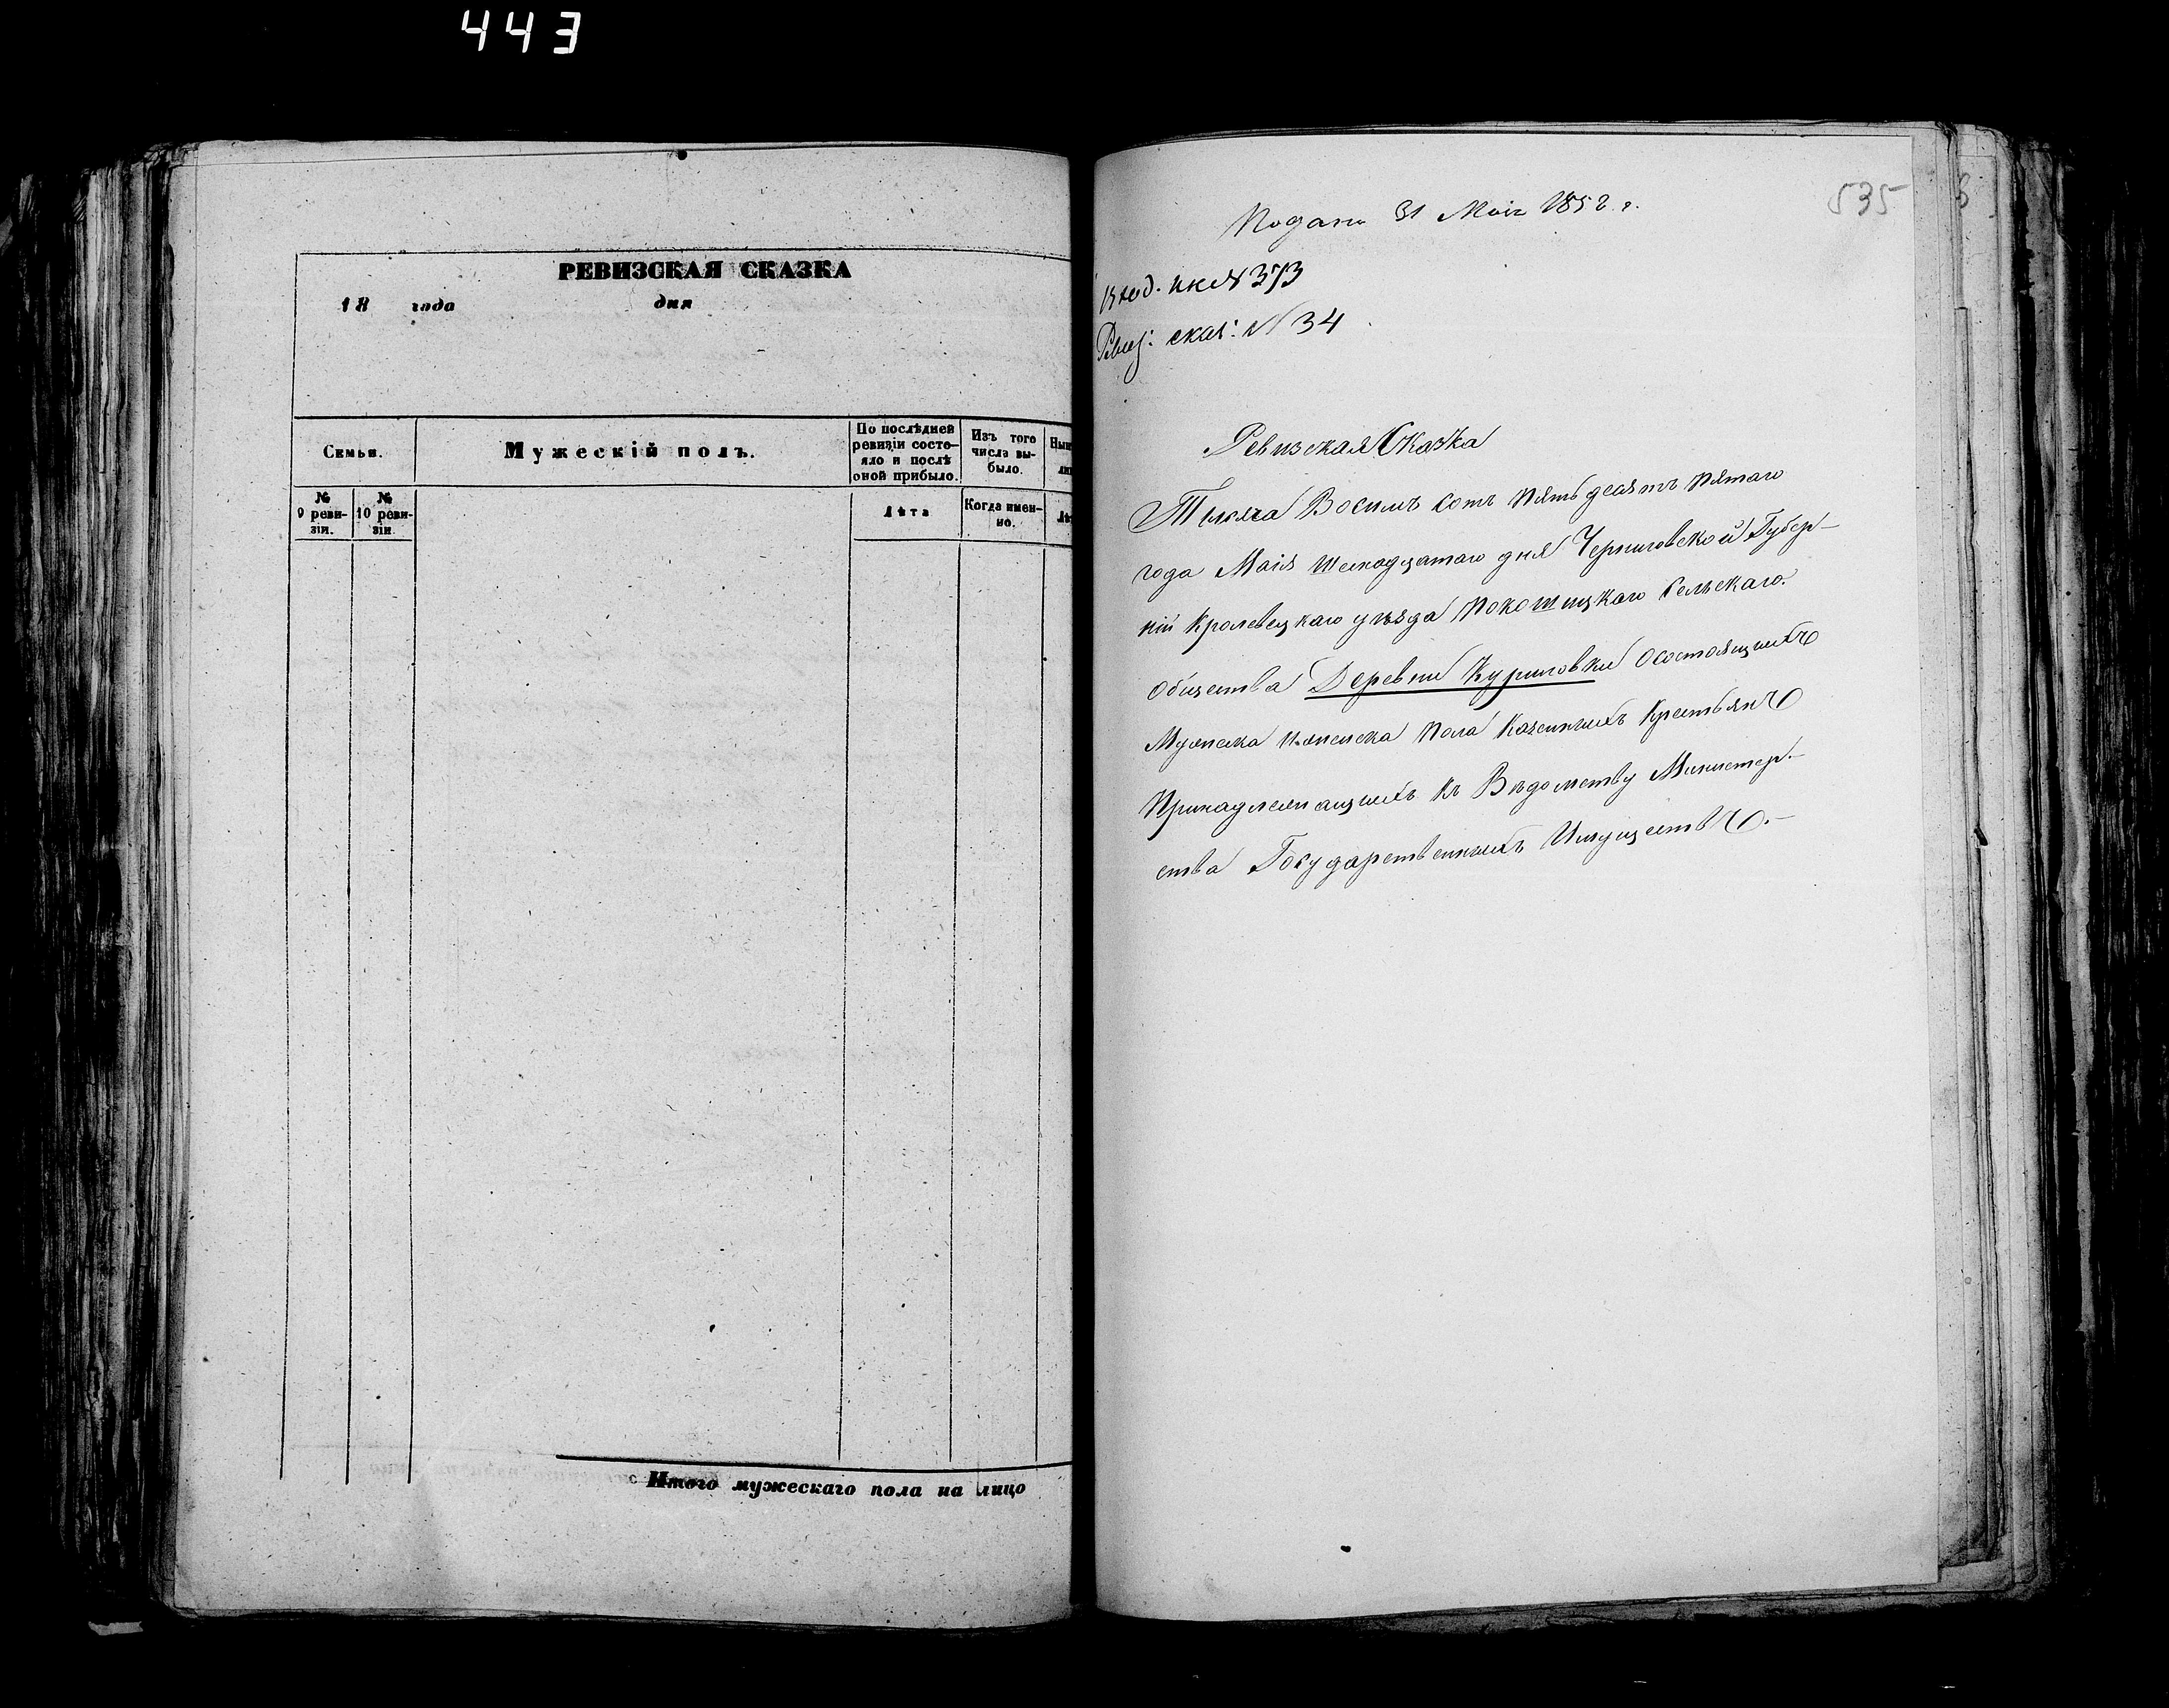 443
РЕВИЗСКАЯ СКАЗКА
18 года дня
Семьи.
Мужескій полъ.
По послѣдней ревизіи состо-
яло и послѣ
оной прибыло.
Изъ того
числа вы-
было.
№
9 реви-
зіи.
№
10 реви-
зіи.
Лѣта
Когда имен-
но.
Итого мужескаго пола на лицо
535
Подана 31 Маія 1858 г.
Вход. ик № 373
Ревиз: сказ: № 34
Ревизская Сказка
Тысяча Восимъ сотъ пятьдесятъ пятаго
года Маія Шеснадцатаго дня Черниговской Губер-
ніи Кролевецкаго уѣзда Покошицкаго Сельскаго
общества Деревни Куриловки о состоящихъ
Мужеска и женска пола Казенныхъ Крестьянъ
Принадлежащихъ къ Вѣдомству Министер-
ства Государственныхъ Имуществъ.-